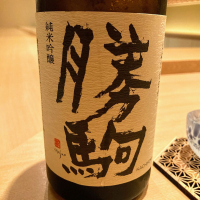 純米吟醸
勝駒